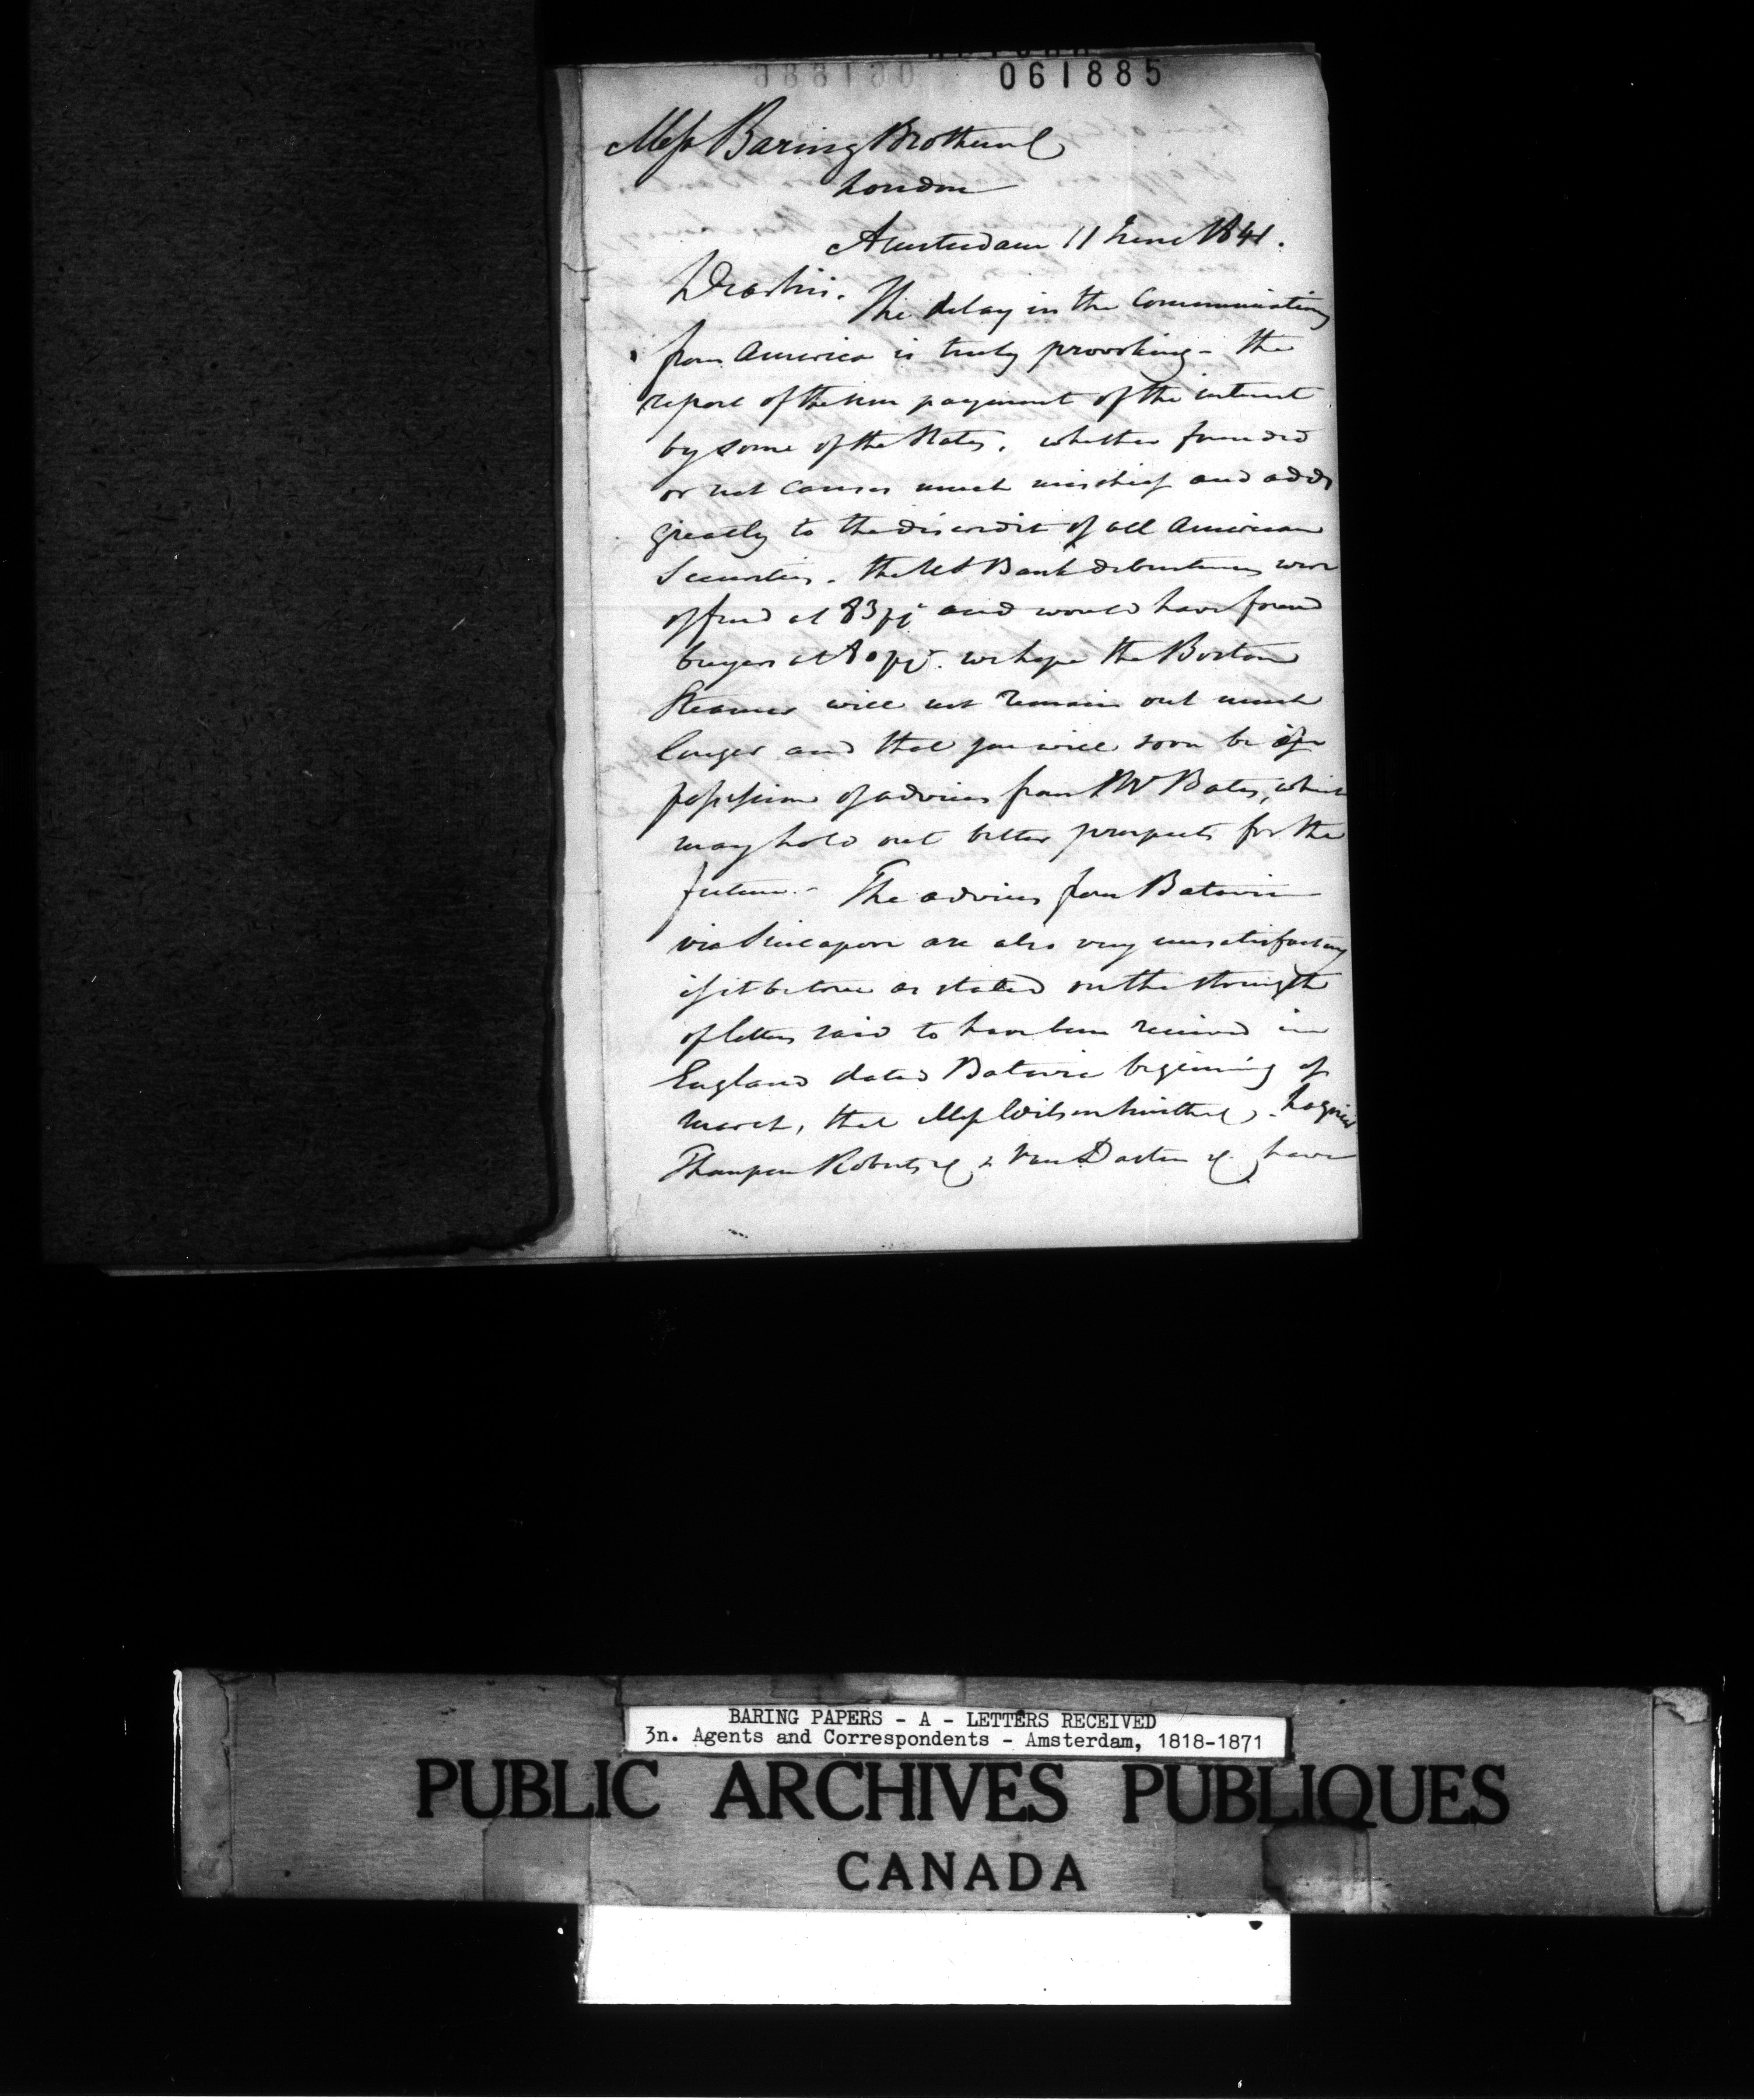 061885
Mess Baring Brothers &C
London
Amsterdam 11 June 1841.
Dear Sirs. The delay in the Communications
from America is truly provoking - the
report of the non payment of the interest
by some of the States, whether founded
or not causes much mischief and adds
greatly to the discredit of all American
Securities. the US Bank debentures were
offered at 83 pc and would have found
buyers at 80 pc. we hope the Boston
Steamer will not remain out much
longer and that you will soon be in
possession of advices from Mr Bates, which
may hold out better prospects for the
future. - The advices from Batavia
via Sincapore are also very unsatisfactory
if it be true as stated on the strength
of letters said to have been received in
England dated Batavia beginning of
March, that Mess Wilson Smith &C,
Thompson Roberts &C & Van Dasten &C have
BARING PAPERS - A - LETTERS RECEIVED
3n. Agents and Correspondents - Amsterdam, 1818-1871
PUBLIC ARCHIVES PUBLIQUES
CANADA